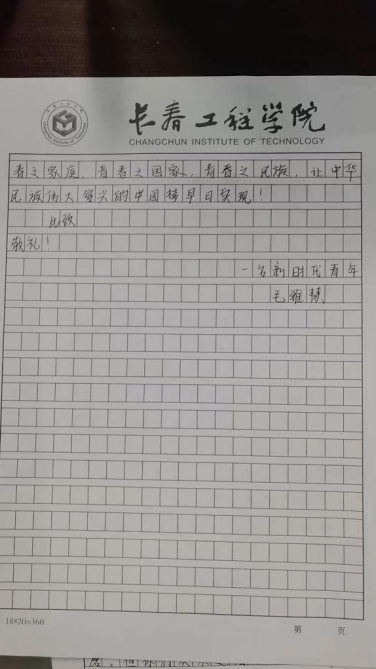 长春工程学院
CHANGCHUN INSTITUTE OF TECHNOLOGY
春之家庭，青春之国家，青春之民族，让中华
民族伟大复兴的中国梦早日实现！
此致
敬礼！
一名新时代青年
毛雅
18×20=360
第 页